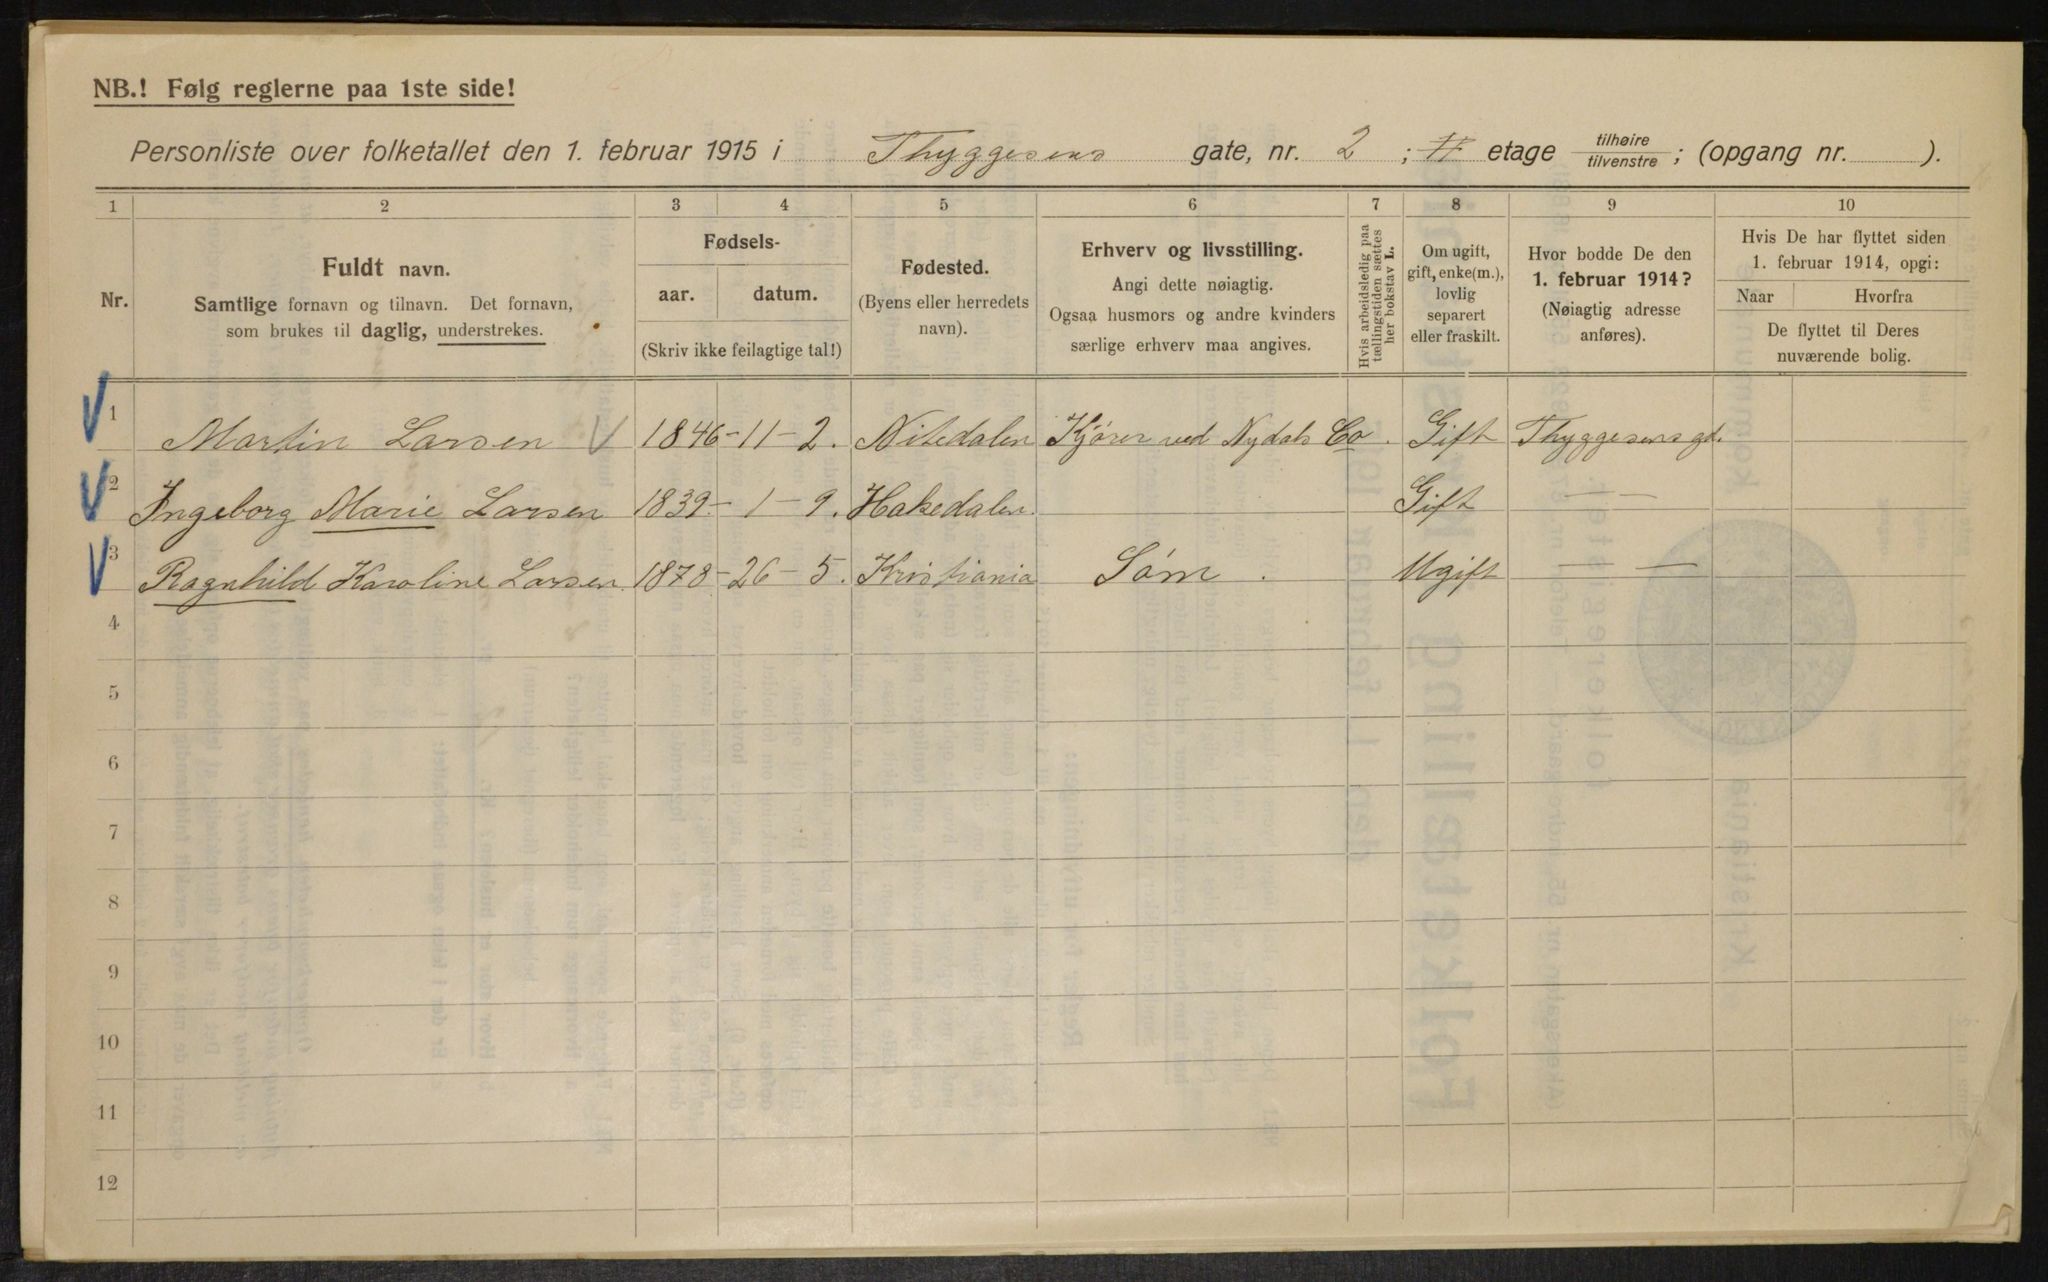 NB.! Følg reglerne paa 1ste side!
Personliste over folketallet den 1. februar 1915 i Thyggesens gate, nr. 2 ; II etage tilhøire/tilvenstre ; (opgang nr. ).
1 2 3 4 5 6 7 8 9 10
Nr.
Fuldt navn.
Samtlige fornavn og tilnavn. Det fornavn,
som brukes til daglig, understrekes.
Fødsels-
aar. datum.
(Skriv ikke feilagtige tal!)
Fødested.
(Byens eller herredets
navn).
Erhverv og livsstilling.
Angi dette nøiagtig.
Ogsaa husmors og andre kvinders
særlige erhverv maa angives.
Hvis arbeidsledig paa
tællingstiden sættes
her bokstav L.
Om ugift,
gift, enke(m.),
lovlig
separert
eller fraskilt.
Hvor bodde De den
1. februar 1914?
(Nøiagtig adresse
anføres).
Hvis De har flyttet siden
1. februar 1914, opgi:
Naar Hvorfra
De flyttet til Deres
nuværende bolig.
1 Martin Larsen 1846 - 11 - 2. Nitedalen Kjører ved Nydals Co. Gift Thyggesens gd.
2 Ingeborg Marie Larsen 1839 - 1 - 9. Hakedalen. Gift — —
3 Ragnhild Karoline Larsen. 1878 - 26 - 5. Kristiania Søm. Ugift — —
4
5
6
7
8
9
10
11
12